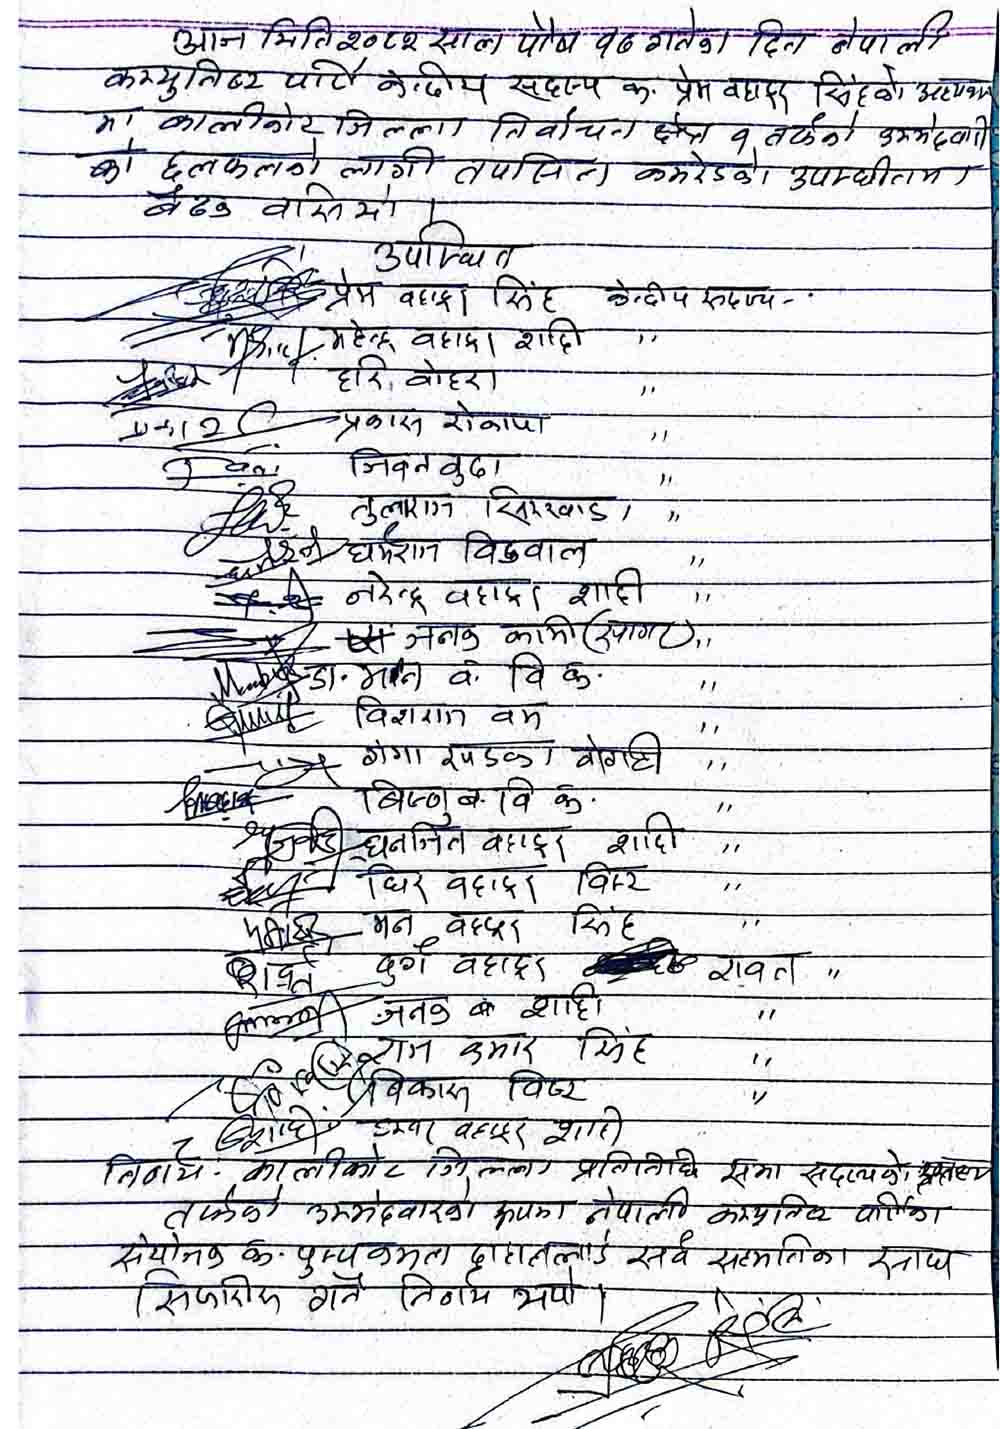 आज मिति २०८२ साल पौष १८ गतेका दिन नेपाली
कम्युनिष्ट पार्टि केन्द्रीय सदस्य क. प्रेम बहादुर सिंहको अध्यक्षता
मा कालीकोट जिल्ला निर्वाचन क्षेत्र १ तर्फको उम्मेदवारी
को छलफलको लागी तपसिल कमरेडको उपस्थीतिमा
बैठक बसियो ।
उपस्थित
प्रेम बहादुर सिंह केन्द्रीय सदस्य
महेन्द्र बहादुर शाही "
हरि बोहरा "
प्रकास रोकाया "
जिवन बुढा "
तुलाराज सिरखाडा "
धर्मराज विडवाल "
नरेन्द्र बहादुर शाही "
जनक कामी (स्वागत) "
डा. मान ब. वि क. "
विशराज बम "
गंगा खड्का योगी "
बिष्णु ब. वि क. "
धनजित बहादुर शाही "
धिर बहादुर विष्ट "
मन बहादुर सिंह "
रावत दुर्ग बहादुर रावत "
जनक ब शाही "
राम कुमार सिंह "
बिकास विष्ट "
शाही डम्बर बहादुर शाही "
निर्णय - कालीकोट जिल्ला प्रतिनिधि सभा सदस्यको
तर्फको उम्मेदवारको रूपमा नेपाली कम्युनिष्ट पार्टिका
संयोजक क. पुष्प कमल दाहाललाई सर्व सहमतिका साथ
सिफारीस गर्ने निर्णय भयो ।